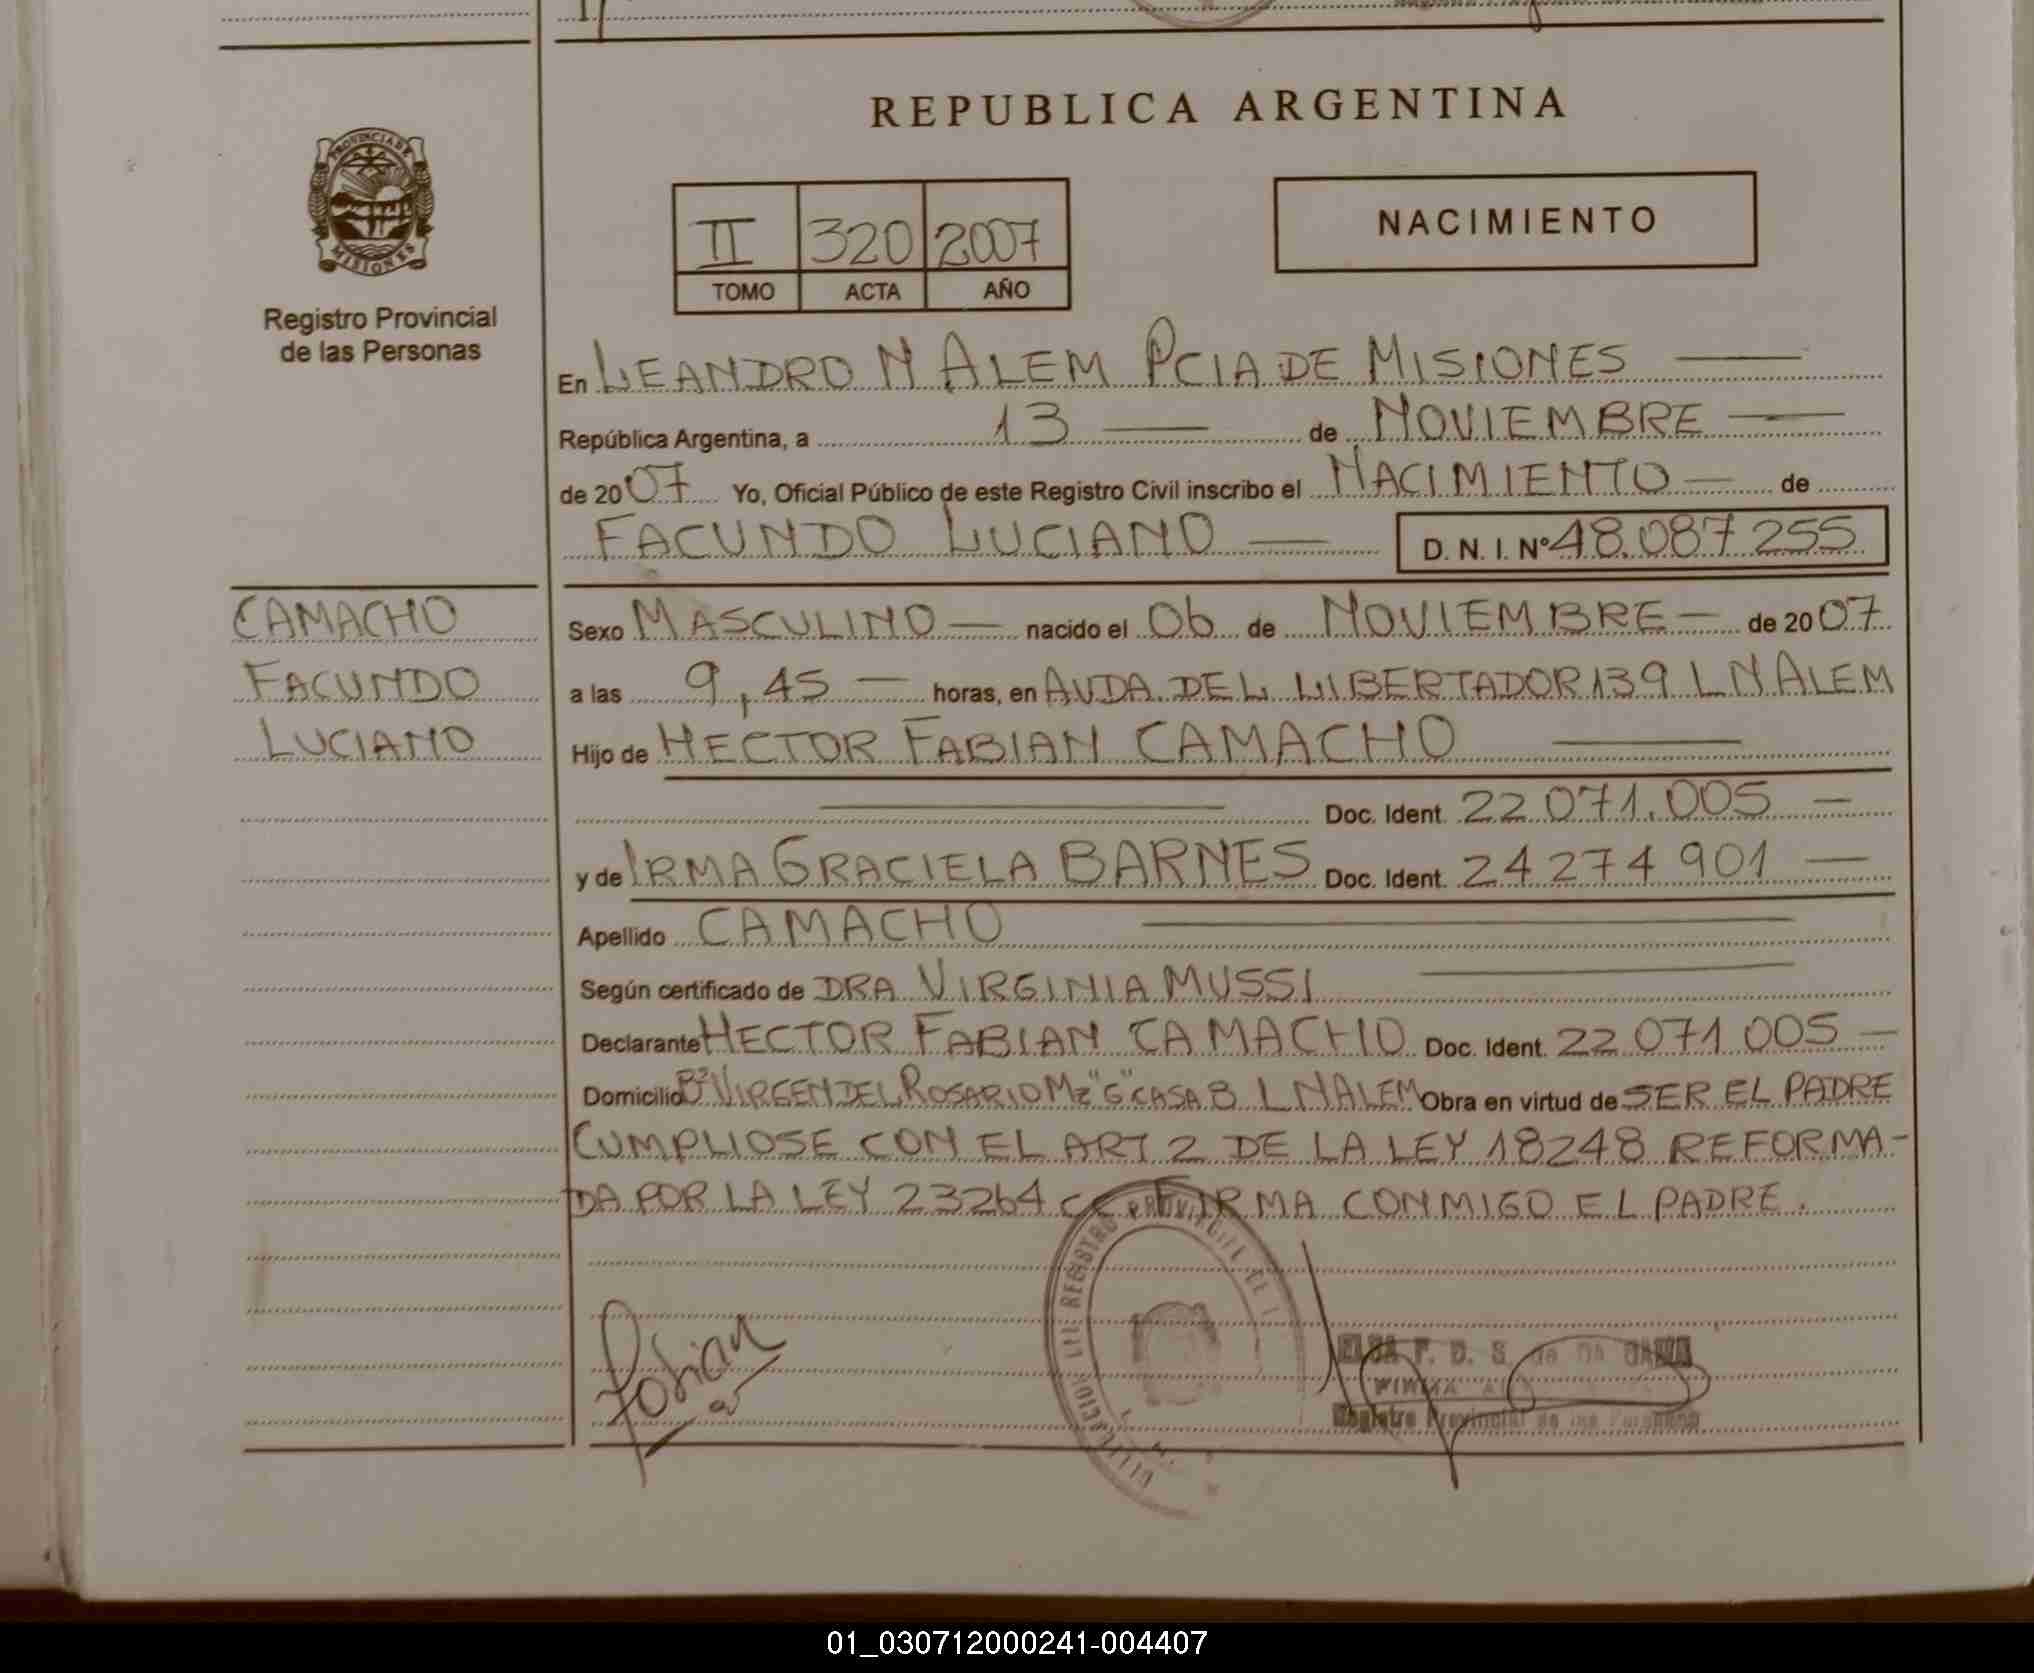 REPUBLICA ARGENTINA
PROVINCIA DE
MISIONES
Registro Provincial
de las Personas
II 320 2007
TOMO ACTA AÑO
NACIMIENTO
En LEANDRO N ALEM PCIA DE MISIONES
República Argentina, a 13 de NOVIEMBRE
de 2007 Yo, Oficial Público de este Registro Civil inscribo el NACIMIENTO de
FACUNDO LUCIANO D. N. I. Nº 48.087 255
CAMACHO
FACUNDO
LUCIANO
Sexo MASCULINO nacido el 06 de NOVIEMBRE de 2007
a las 9,45 horas, en AVDA. DEL LIBERTADOR 139 L N ALEM
Hijo de HECTOR FABIAN CAMACHO
Doc. Ident. 22 071.005
y de IRMA GRACIELA BARNES Doc. Ident. 24 274 901
Apellido CAMACHO
Según certificado de DRA VIRGINIA MUSSI
Declarante HECTOR FABIAN CAMACHO Doc. Ident. 22 071 005
Domicilio Bº VIRGEN DEL ROSARIO Mz "G" CASA 8 L N ALEM Obra en virtud de SER EL PADRE
CUMPLIOSE CON EL ART 2 DE LA LEY 18248 REFORMA-
DA POR LA LEY 23264 CC FIRMA CONMIGO EL PADRE.
REGISTRO PROVINCIAL DE
Fabian
F. D. S. de
Registro Provincial de las Personas
01_030712000241-004407